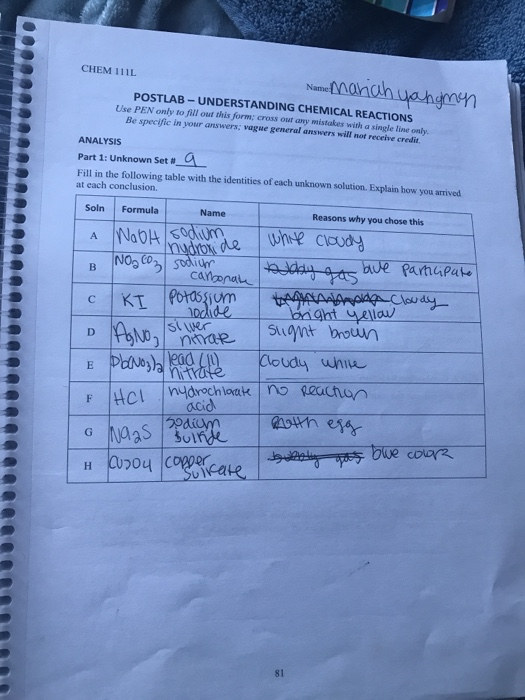 CHEM 111L
Name: Mariah yangmen
POSTLAB – UNDERSTANDING CHEMICAL REACTIONS
Use PEN only to fill out this form; cross out any mistakes with a single line only.
Be specific in your answers; vague general answers will not receive credit.
ANALYSIS
Part 1: Unknown Set # 9
Fill in the following table with the identities of each unknown solution. Explain how you arrived
at each conclusion.
Soln Formula Name Reasons why you chose this
A NaOH sodium hydroxide white cloudy
B Na2CO3 sodium carbonate blue participate
C KI Potassium iodide cloudy bright yellow
D AgNO3 silver nitrate slight brown
E Pb(NO3)2 lead (II) nitrate cloudy white
F HCl hydrochlorate acid no reaction
G Na2S sodium sulfide egg
H CuSO4 copper sulfate blue color
81